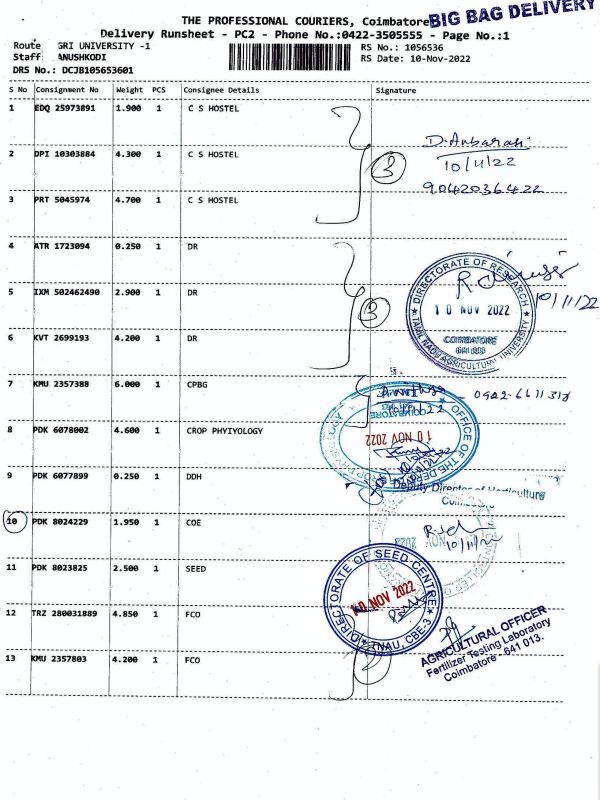 THE PROFESSIONAL COURIERS, Coimbatore BIG BAG DELIVERY
Delivery Runsheet - PC2 - Phone No.:0422-3505555 - Page No.:1
Route GRI UNIVERSITY -1 RS No.: 1056536
Staff ANUSHKODI RS Date: 10-Nov-2022
DRS No.: DCJB105653601
S No Consignment No Weight PCS Consignee Details Signature
1 EDQ 25973891 1.900 1 C S HOSTEL
D. Anbarasi
2 DPI 10303884 4.300 1 C S HOSTEL
3 10/11/22
9042036422
3 PRT 5045974 4.700 1 C S HOSTEL
4 ATR 1723094 0.250 1 DR
DIRECTORATE OF RESEARCH
5 IXM 502462490 2.900 1 DR
10/11/22
3 10 NOV 2022
6 KVT 2699193 4.200 1 DR
COIMBATORE
641 003
TAMIL NADU AGRICULTURAL UNIVERSITY
7 KMU 2357388 6.000 1 CPBG
8 PDK 6078002 4.600 1 CROP PHYIYOLOGY
10 NOV 2022
9 PDK 6077899 0.250 1 DDH
Deputy Director of Horticulture
Coimbatore
10 PDK 8024229 1.950 1 COE
10/11/22
11 PDK 8023825 2.500 1 SEED
DIRECTORATE OF SEED CENTRE
10 NOV 2022
TNAU, CBE-3
12 TRZ 280031889 4.850 1 FCO
AGRICULTURAL OFFICER
Fertilizer Testing Laboratory
Coimbatore - 641 013.
13 KMU 2357803 4.200 1 FCO